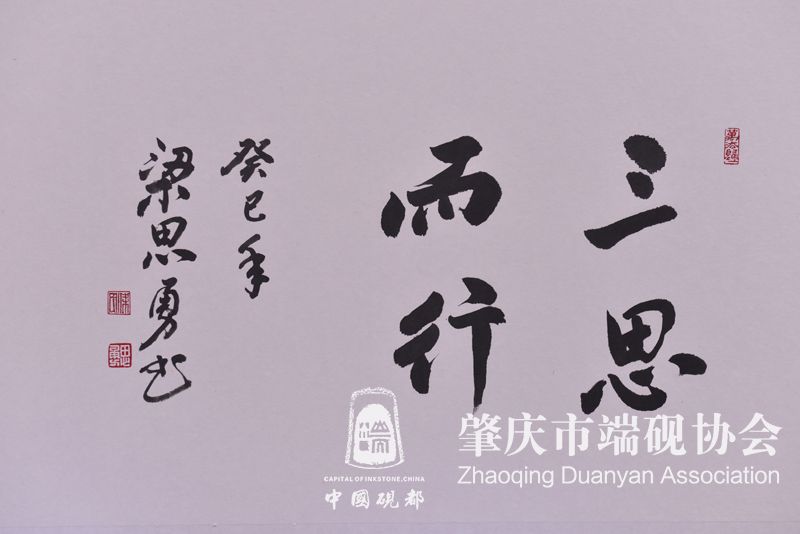 三思
而行
癸巳年
梁思勇书
肇庆市端砚协会
Zhaoqing Duanyan Association
端
CAPITAL OF INKSTONE,CHINA
中國硯都